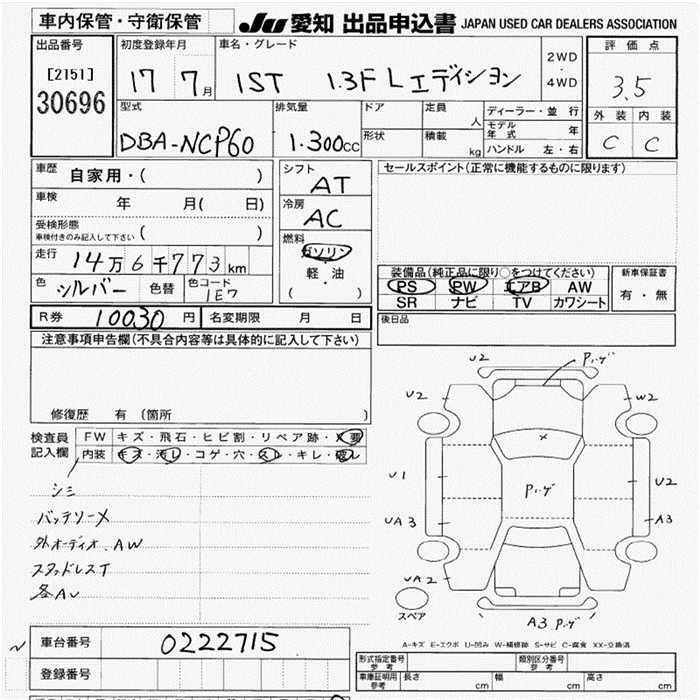 車内保管・守衛保管
JU 愛知 出品申込書 JAPAN USED CAR DEALERS ASSOCIATION
出品番号
[2151]
30696
初度登録年月
17 7月
車名・グレード
IST 1.3F Lエディション
2WD
・
4WD
評価点
3.5
外装 内装
C C
型式
DBA-NCP60
排気量
1.300cc
ドア
形状
定員
人
積載
kg
ディーラー・並行
モデル年式 年
ハンドル 左・右
車歴
自家用・( )
車検
年 月( 日)
受検形態
車検付きのみ記入して下さい ( )
走行
14万6千773km
色 シルバー 色替 色コード
1E7
シフト
AT
冷房
AC
燃料
ガソリン
・
軽・油
( )
セールスポイント(正常に機能するものに限ります)
装備品(純正品に限り○をつけてください)
PS PW エアB AW
SR ナビ TV カワシート
新車保証書
有・無
後日品
R券 10030円 名変期限 月 日
注意事項申告欄(不具合内容等は具体的に記入して下さい)
修復歴 有 (箇所 )
検査員
記入欄
FW キズ・飛石・ヒビ割・リペア跡・X要
内装 キズ・汚レ・コゲ・穴・スレ・キレ・破レ
シミ
バッテリーメ
外オーディオ.AW
スタッドレスT
各AU
U2 Pハゲ
U2 W2
X
U1 Pハゲ U2
UA3 A3
UA2
スペア
A3 Pハゲ
A-キズ E-エクボ U-凹み W-補修跡 S-サビ C-腐食 XX-交換済
車台番号 0222715
登録番号
型式指定番号
参考
類別区分番号
参考
車庫証明用
参考
長さ cm 幅 cm 高さ cm